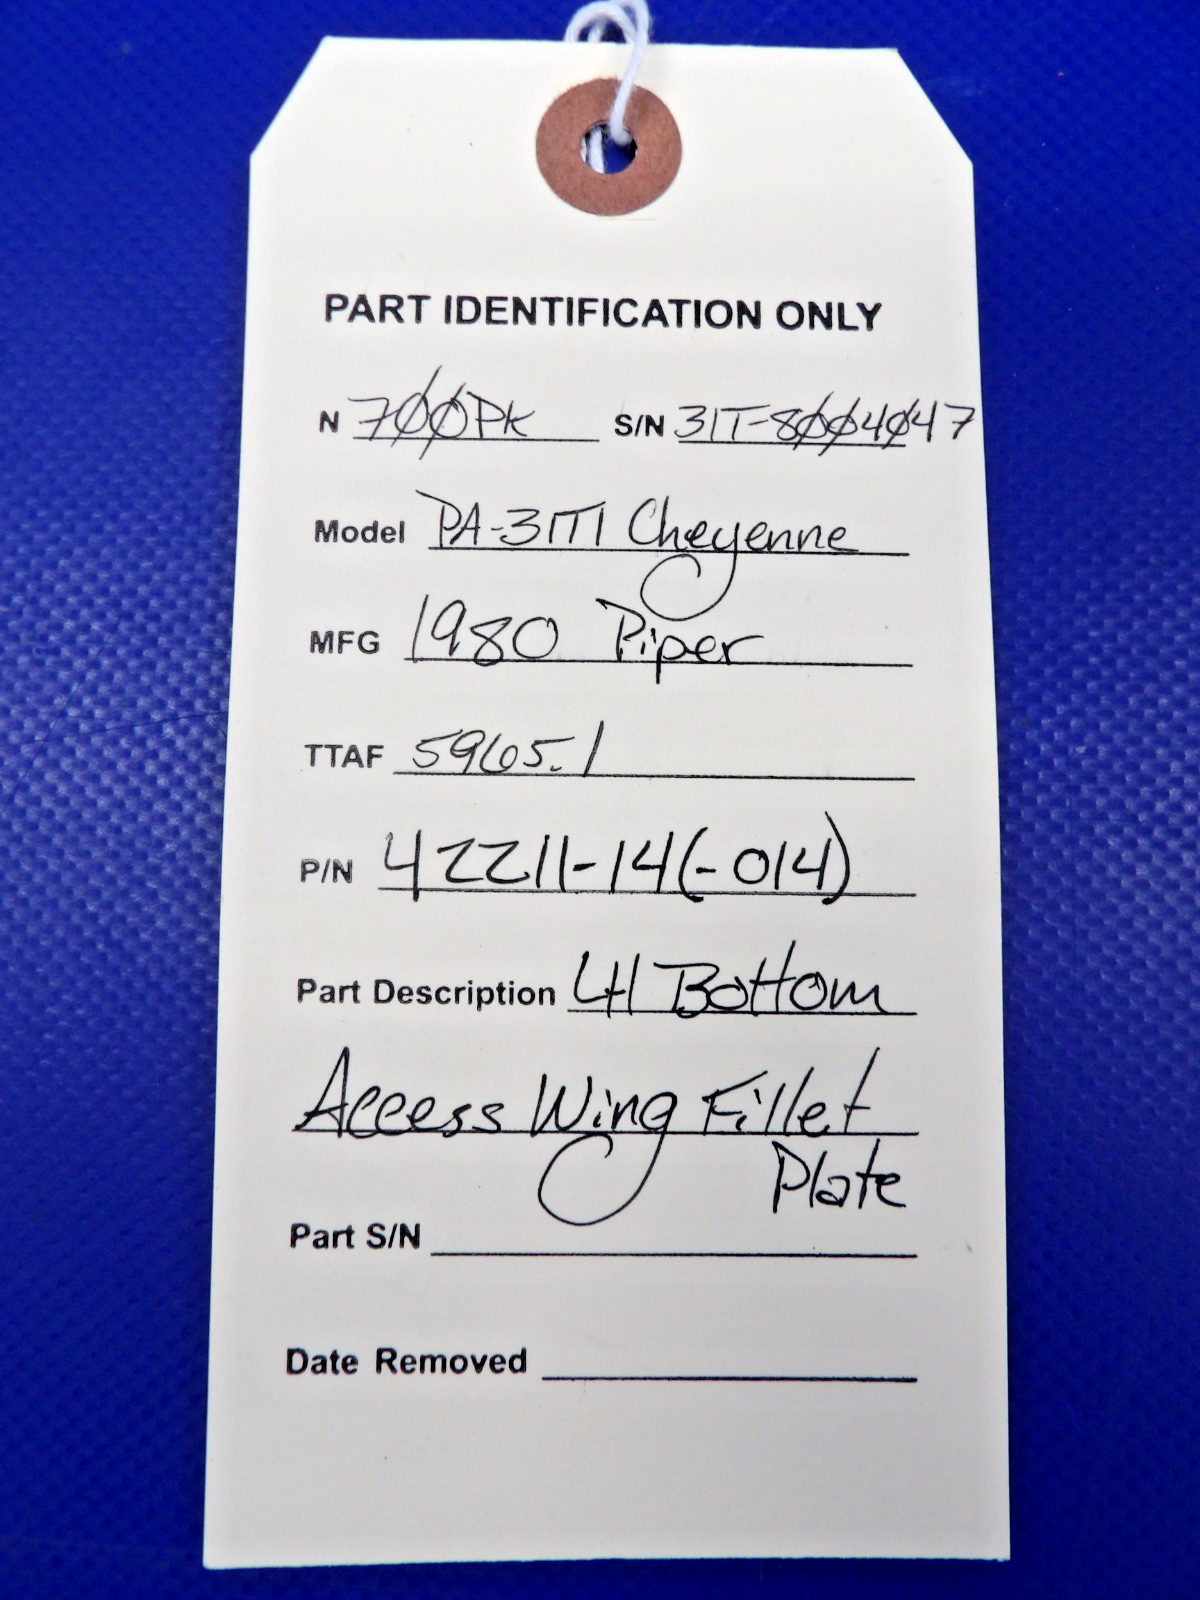 PART IDENTIFICATION ONLY
N 700PK S/N 31T-8004047
Model PA-31T1 Cheyenne
MFG 1980 Piper
TTAF 5965.1
P/N 42211-14(-014)
Part Description LH Bottom
Access Wing Fillet
Plate
Part S/N
Date Removed